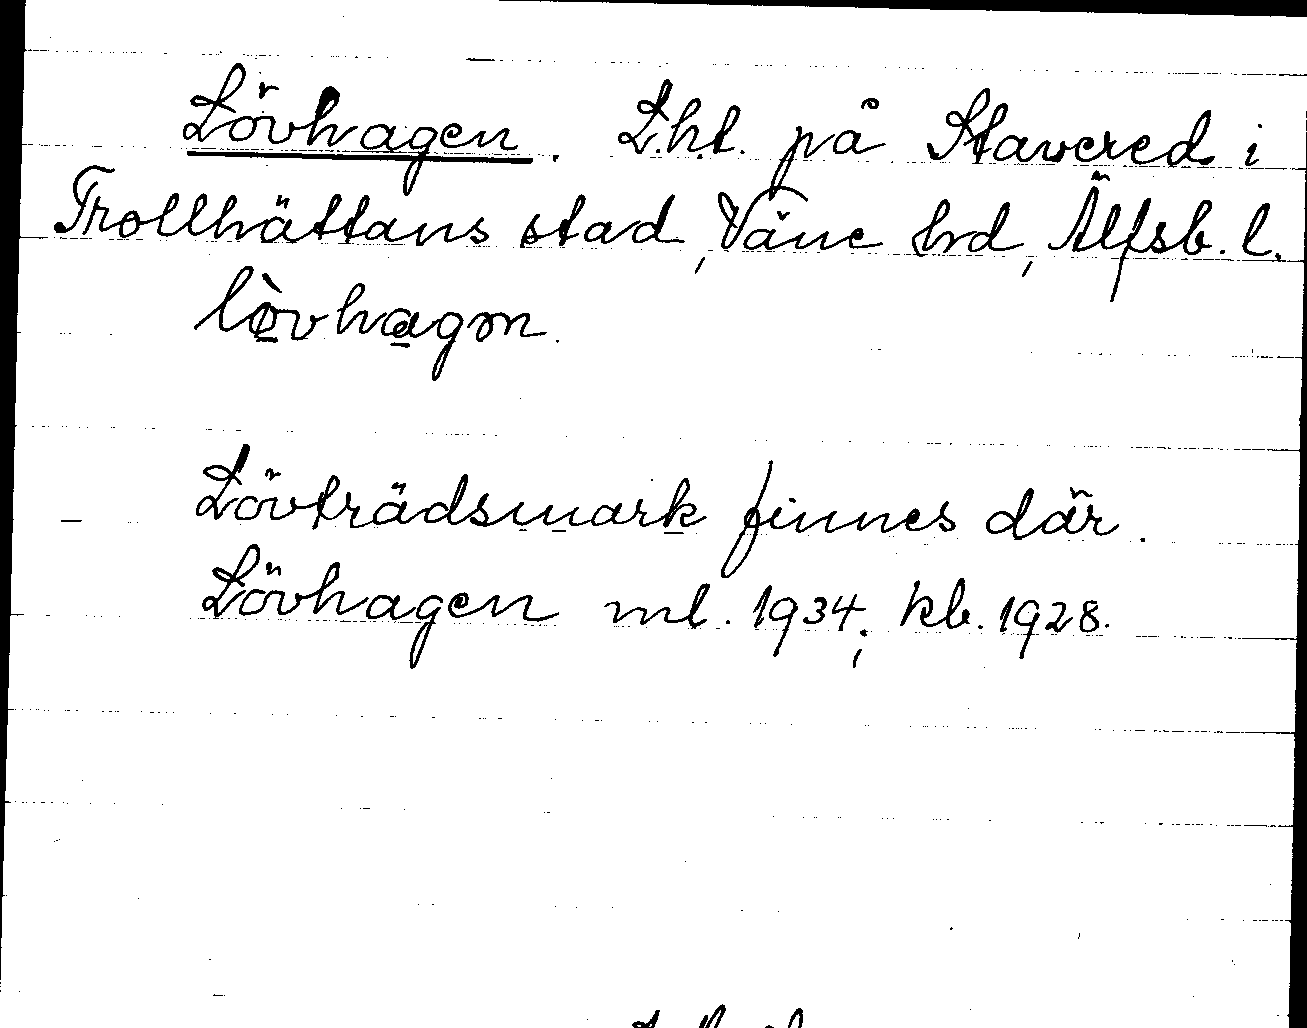 Lövhagen. L.h.t. på Stavered i
Trollhättans stad, Väne hrd, Älfsb. l.
lòvhagən.
Lövträdsmark finnes där.
Lövhagen ml. 1934; kb. 1928.